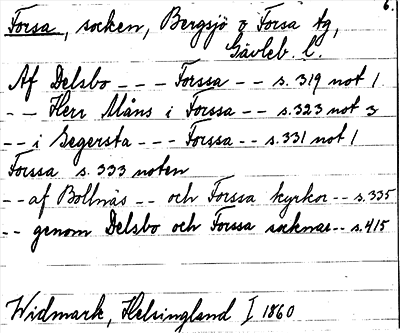 6.
Forsa, socken, Bergsjö o Forsa tg,
Gävleb. l.
Af Delsbo --- Forssa -- s. 319 not 1
-- Herr Måns i Forssa -- s. 323 not 3
-- i Segersta --- Forssa -- s. 331 not 1
Forssa s. 333 noten
-- af Bollnäs -- och Forssa kyrkor -- s. 335
-- genom Delsbo och Forssa socknar -- s. 415
Widmark, Helsingland I 1860